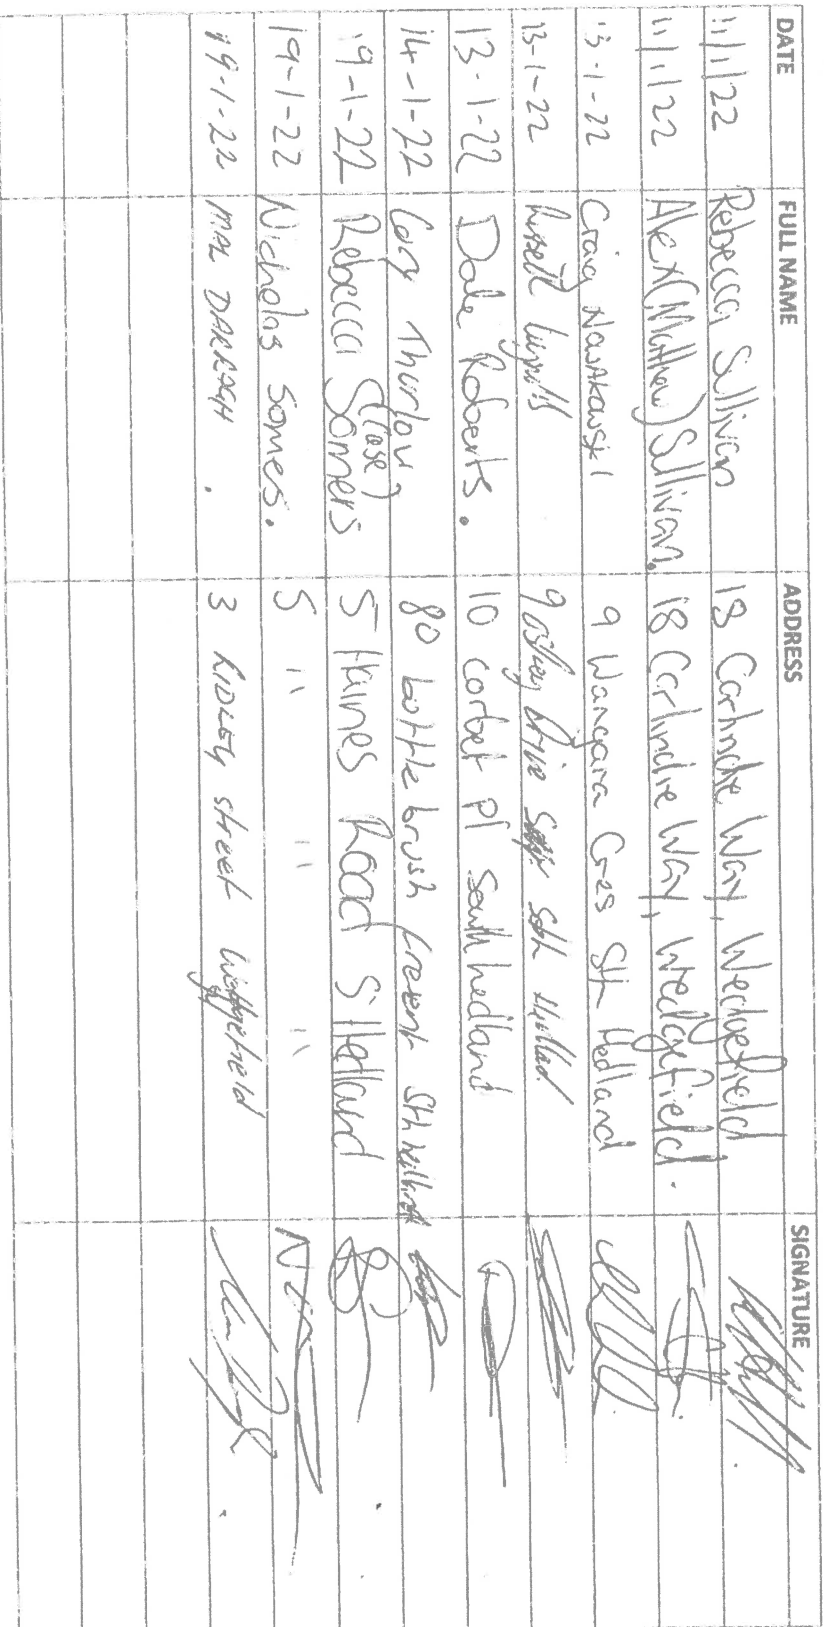 DATE FULL NAME ADDRESS SIGNATURE
11/1/22 Rebecca Sullivan 18 Carlindie Way, Wedgefield
11/1/22 Alex (Matthew) Sullivan. 18 Carlindie Way, Wedgefield.
13-1-22 Craig Nowakowski 9 Wangara Cres Sth Hedland
13-1-22 Drive Sth Hedland
13-1-22 Dale Roberts. 10 Corbet pl South hedland
14-1-22 Thurlow 80 bottlebrush Cresent Sth hedland
19-1-22 Rebecca (Case) Somers 5 Haines Road S Hedland
19-1-22 Nicholas Somes. 5 " " "
19-1-22 MAL DARRAGH. 3 RIDLEY street Wedgefield